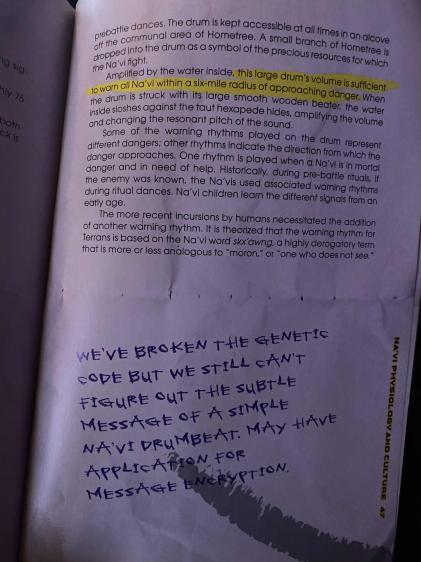 prebattle dances. The drum is kept accessible at all times in an alcove
off the communal area of Hometree. A small branch of Hometree is
dropped into the drum as a symbol of the precious resources for which
the Na'vi fight.
Amplified by the water inside, this large drum's volume is sufficient
to warn all Na'vi within a six-mile radius of approaching danger. When
the drum is struck with its large smooth wooden beater, the water
inside sloshes against the taut hexapede hides, amplifying the volume
and changing the resonant pitch of the sound.
Some of the warning rhythms played on the drum represent
different dangers; other rhythms indicate the direction from which the
danger approaches. One rhythm is played when a Na'vi is in mortal
danger and in need of help. Historically, during pre-battle rituals, if
the enemy was known, the Na'vis used associated warning rhythms
during ritual dances. Na'vi children learn the different signals from an
early age.
The more recent incursions by humans necessitated the addition
of another warning rhythm. It is theorized that the warning rhythm for
Terrans is based on the Na'vi word skx'awng, a highly derogatory term
that is more or less analogous to "moron," or "one who does not see."
WE'VE BROKEN THE GENETIC
CODE BUT WE STILL CAN'T
FIGURE OUT THE SUBTLE
MESSAGE OF A SIMPLE
NA'VI DRUMBEAT. MAY HAVE
APPLICATION FOR
MESSAGE ENCRYPTION.
NA'VI PHYSIOLOGY AND CULTURE 47